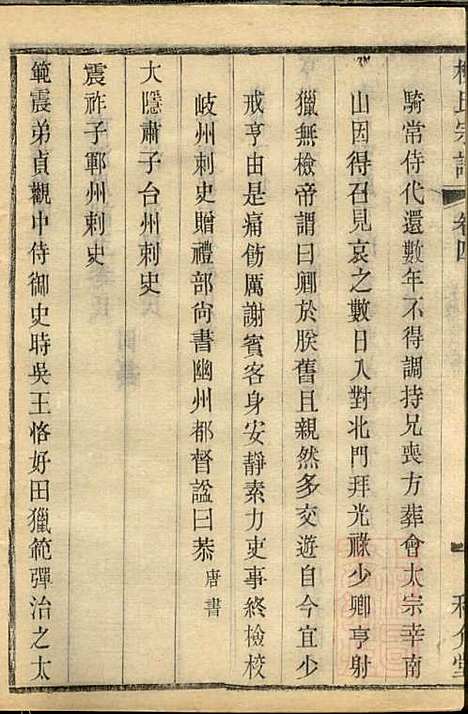 騎常侍代還數年不得調持兄喪方葬會太宗幸南
山因得召見哀之數日入對北門拜光祿少卿亨射
獵無檢帝謂曰卿於朕舊且親然多交遊自今宜少
戒亨由是痛飭厲謝賓客身安靜素力吏事終檢校
岐州刺史贈禮部尙書幽州都督諡曰恭 唐書
大隱肅子台州刺史
震祚子鄆州刺史
範震弟貞觀中侍御史時吳王恪好田獵範彈治之太
卷四